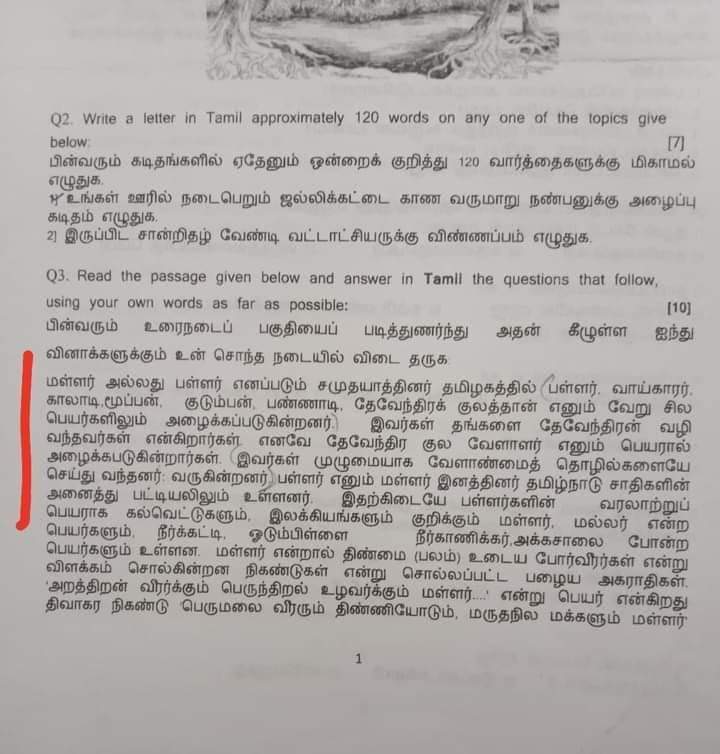 Q2. Write a letter in Tamil approximately 120 words on any one of the topics give
below: [7]
பின்வரும் கடிதங்களில் ஏதேனும் ஒன்றைக் குறித்து 120 வார்த்தைகளுக்கு மிகாமல்
எழுதுக.
1] உங்கள் ஊரில் நடைபெறும் ஜல்லிக்கட்டை காண வருமாறு நண்பனுக்கு அழைப்பு
கடிதம் எழுதுக.
2] இருப்பிட சான்றிதழ் வேண்டி வட்டாட்சியருக்கு விண்ணப்பம் எழுதுக.
Q3. Read the passage given below and answer in Tamil the questions that follow,
using your own words as far as possible: [10]
பின்வரும் உரைநடைப் பகுதியைப் படித்துணர்ந்து அதன் கீழுள்ள ஐந்து
வினாக்களுக்கும் உன் சொந்த நடையில் விடை தருக
மள்ளர் அல்லது பள்ளர் எனப்படும் சமுதயாத்தினர் தமிழகத்தில் பள்ளர், வாய்காரர்,
காலாடி,மூப்பன், குடும்பன், பண்ணாடி, தேவேந்திரக் குலத்தான் எனும் வேறு சில
பெயர்களிலும் அழைக்கப்படுகின்றனர். இவர்கள் தங்களை தேவேந்திரன் வழி
வந்தவர்கள் என்கிறார்கள். எனவே தேவேந்திர குல வேளாளர் எனும் பெயரால்
அழைக்கபடுகின்றார்கள். இவர்கள் முழுமையாக வேளாண்மைத் தொழில்களையே
செய்து வந்தனர்: வருகின்றனர். பள்ளர் எனும் மள்ளர் இனத்தினர் தமிழ்நாடு சாதிகளின்
அனைத்து பட்டியலிலும் உள்ளனர். இதற்கிடையே பள்ளர்களின் வரலாற்றுப்
பெயராக கல்வெட்டுகளும், இலக்கியங்களும் குறிக்கும் மள்ளர், மல்லர் என்ற
பெயர்களும், நீர்க்கட்டி, ஓடும்பிள்ளை நீர்காணிக்கர்,அக்கசாலை போன்ற
பெயர்களும் உள்ளன. மள்ளர் என்றால் திண்மை (பலம்) உடைய போர்வீரர்கள் என்று
விளக்கம் சொல்கின்றன நிகண்டுகள் என்று சொல்லப்பட்ட பழைய அகராதிகள்.
'அறத்திறன் வீரர்க்கும் பெருந்திறல் உழவர்க்கும் மள்ளர்....' என்று பெயர் என்கிறது
திவாகர நிகண்டு 'பெருமலை வீரரும் திண்ணியோடும், மருதநில மக்களும் மள்ளர்'
1